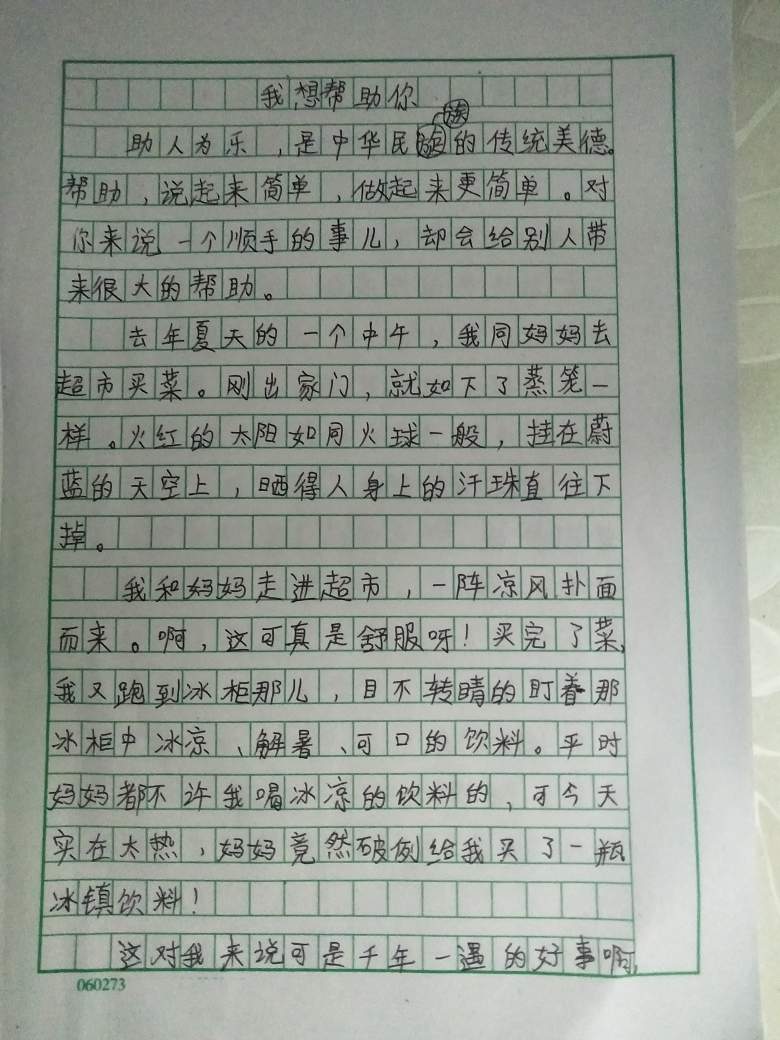 我想帮助你
族
助人为乐，是中华民族的传统美德。
帮助，说起来简单，做起来更简单。对
你来说一个顺手的事儿，却会给别人带
来很大的帮助。
去年夏天的一个中午，我同妈妈去
超市买菜。刚出家门，就如下了蒸笼一
样。火红的太阳如同火球一般，挂在蔚
蓝的天空上，晒得人身上的汗珠直往下
掉。
我和妈妈走进超市，一阵凉风扑面
而来。啊，这可真是舒服呀！买完了菜，
我又跑到冰柜那儿，目不转睛的盯着那
冰柜中冰凉、解暑、可口的饮料。平时
妈妈都不许我喝冰凉的饮料的，可今天
实在太热，妈妈竟然破例给我买了一瓶
冰镇饮料！
这对我来说可是千年一遇的好事啊，
060273